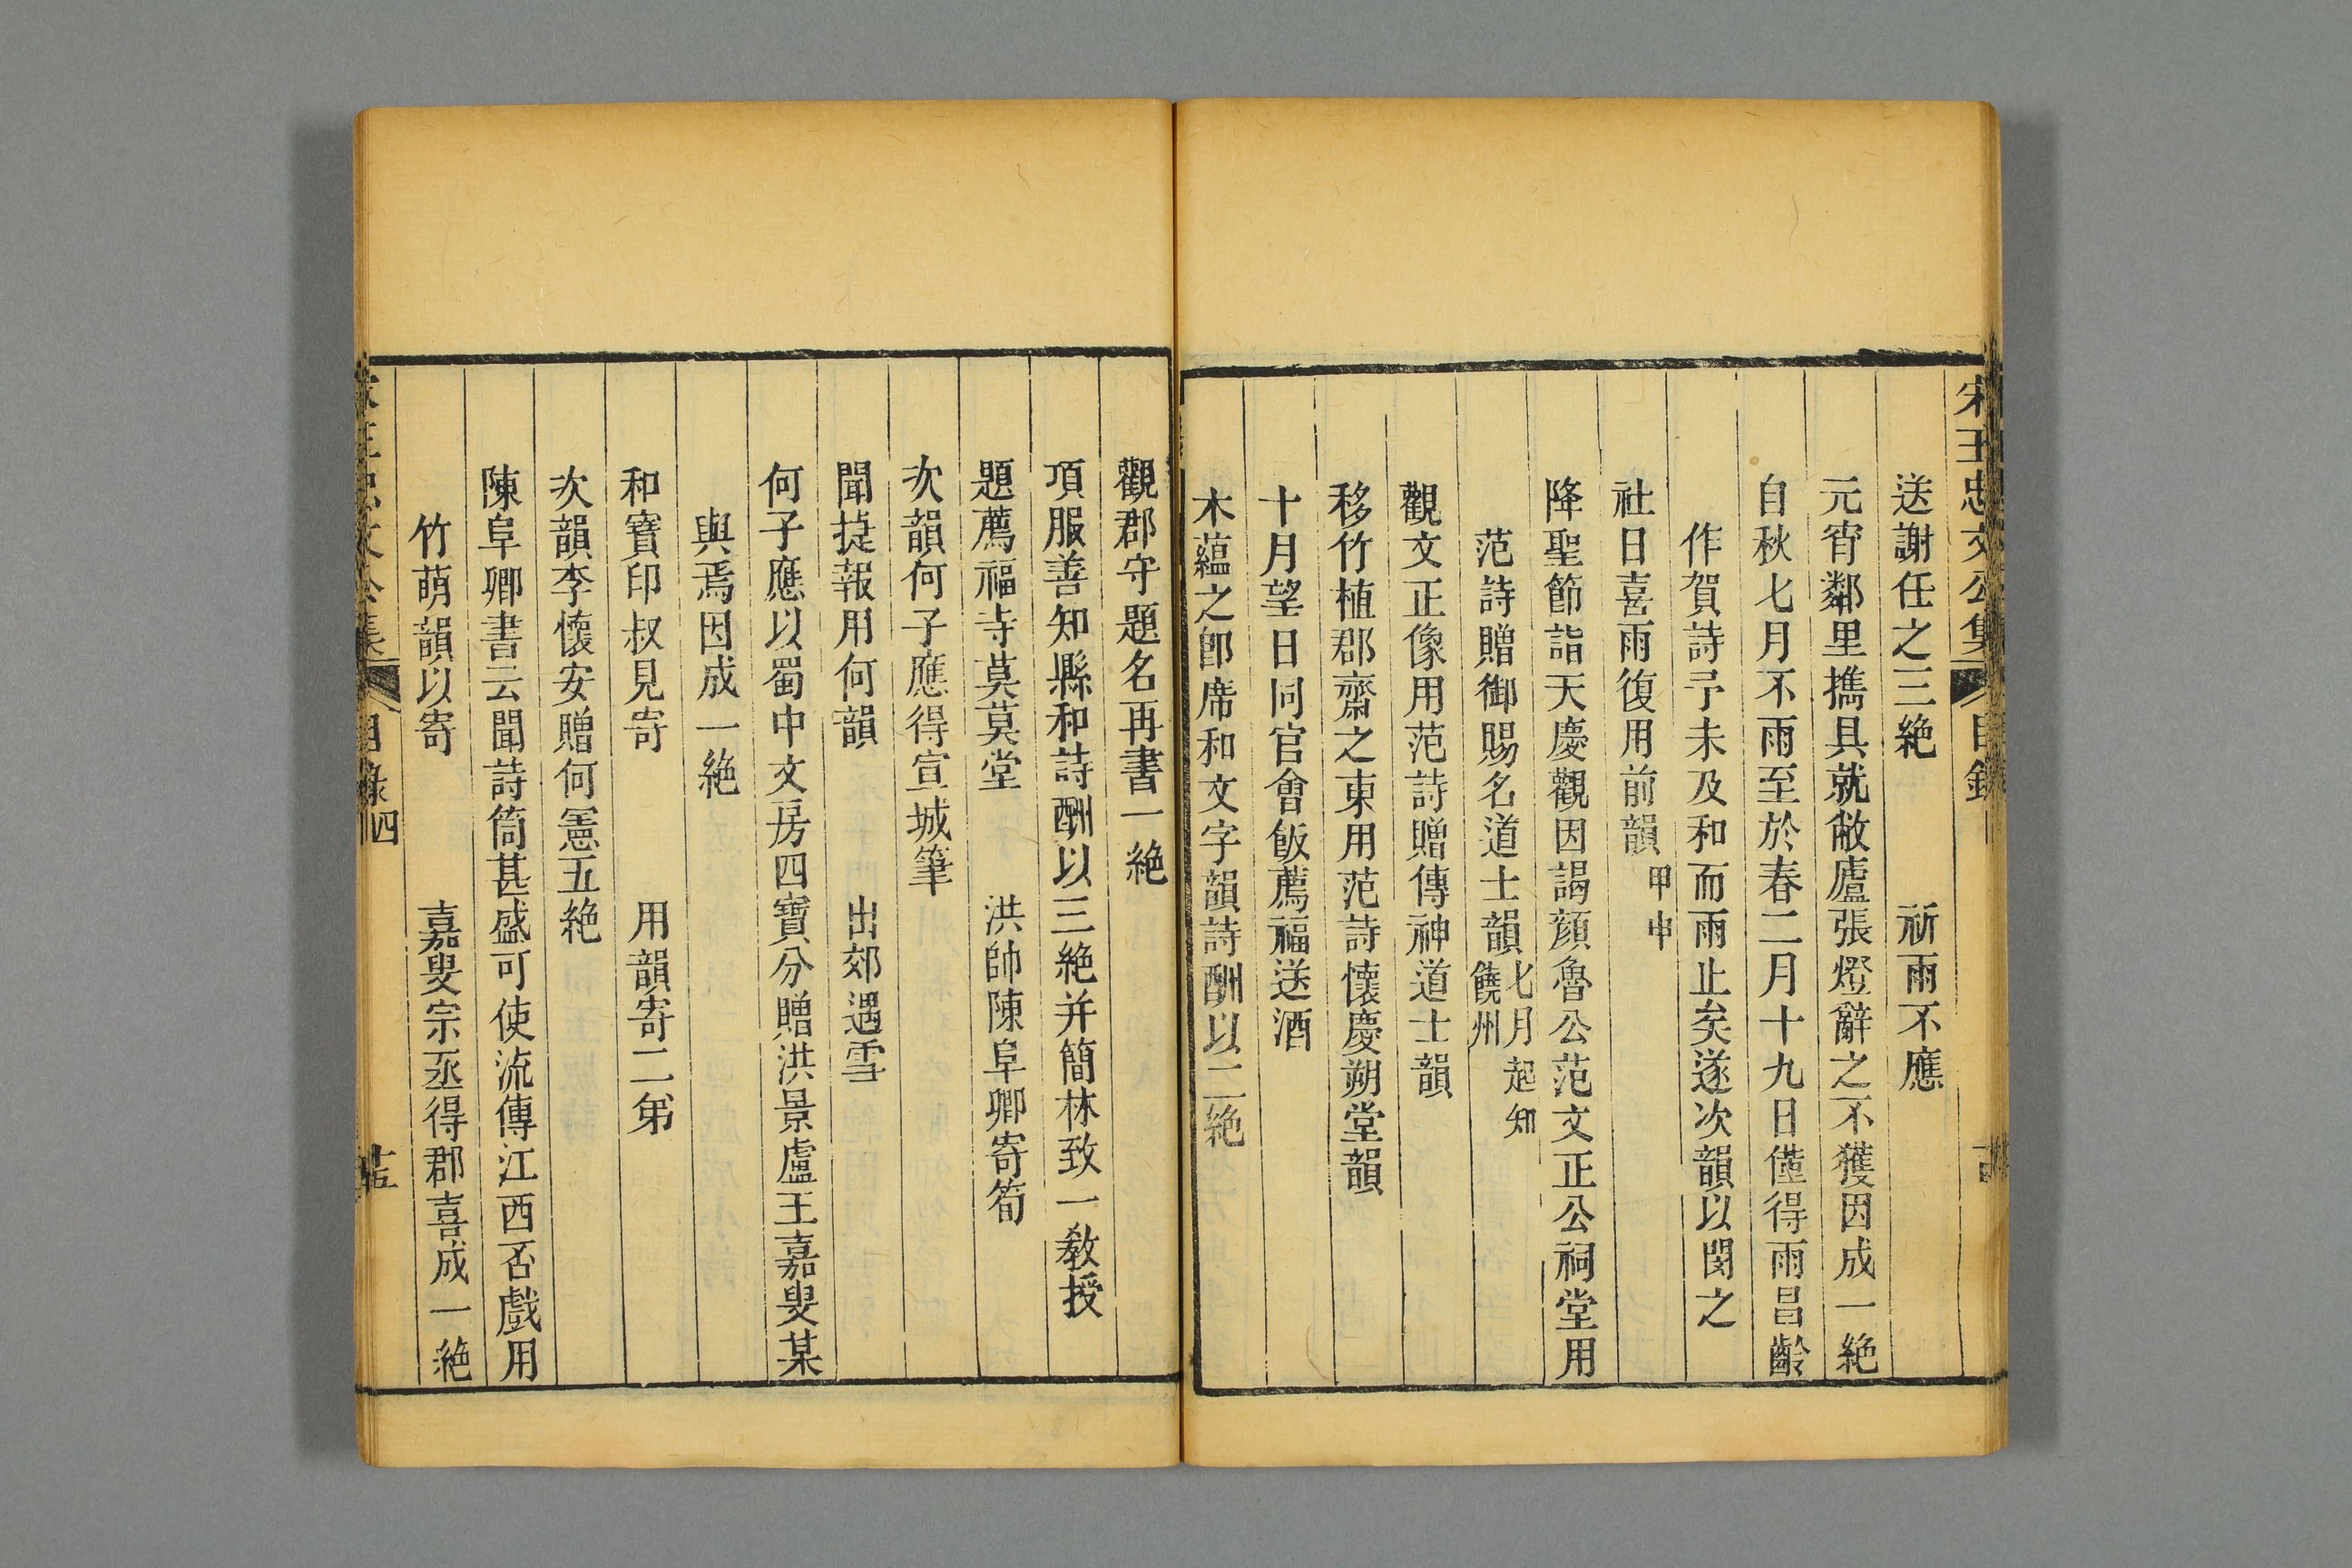 宋王忠文公集 目錄
送謝任之三絶 祈雨不應
元宵鄰里攜具就敝廬張燈辭之不獲因成一絶
自秋七月不雨至於春二月十九日僅得雨昌齡
作賀詩予未及和而雨止矣遂次韻以閔之
社日喜雨復用前韻甲申
降聖節詣天慶觀因謁顔魯公范文正公祠堂用
范詩贈御賜名道士韻七月起知饒州
觀文正像用范詩贈傳神道士韻
移竹植郡齋之東用范詩懷慶朔堂韻
十月望日同官會飯薦福送酒
木蘊之卽席和文字韻詩酬以二絶
觀郡守題名再書一絶
項服善知縣和詩酬以三絶并簡林致一敎授
題薦福寺莫莫堂 洪帥陳阜卿寄筍
次韻何子應得宣城筆
聞捷報用何韻 出郊遇雪
何子應以蜀中文房四寶分贈洪景盧王嘉叟某
與焉因成一絶
和寶印叔見寄 用韻寄二弟
次韻李懷安贈何憲五絶
陳阜卿書云聞詩筒甚盛可使流傳江西否戲用
竹萌韻以寄 嘉叟宗丞得郡喜成一絶
宋王忠文公集 目錄四 十五